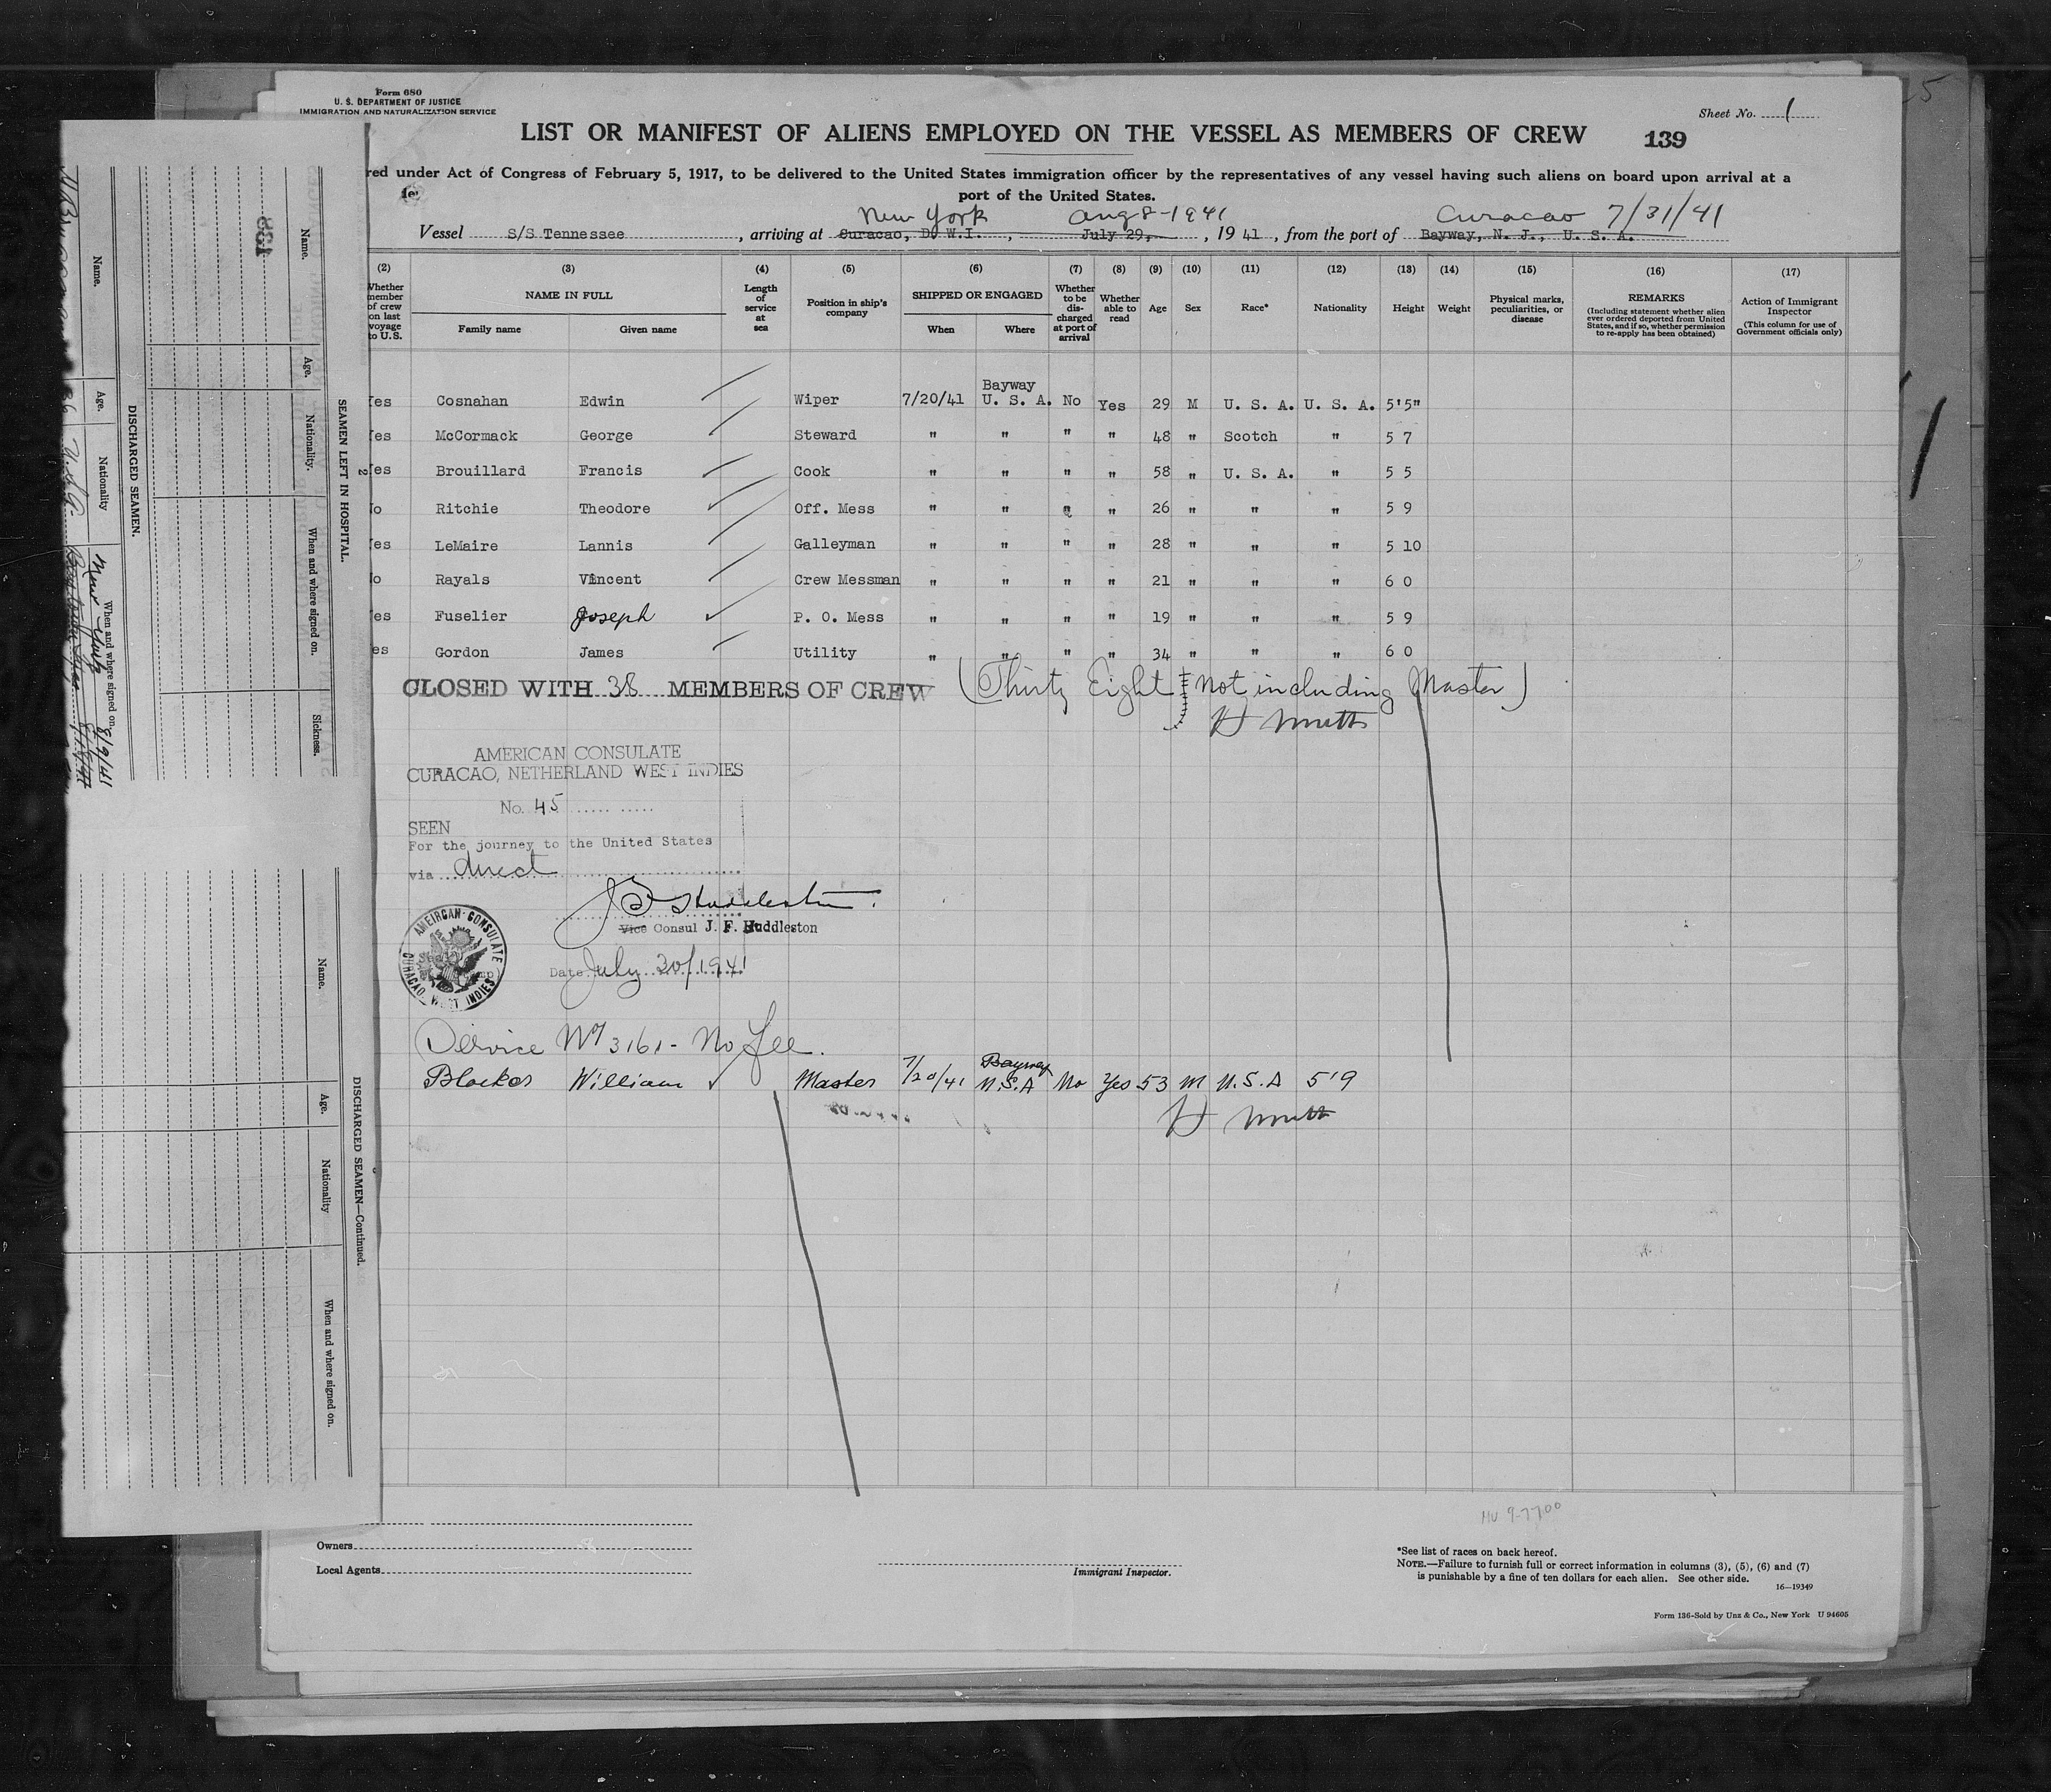 Form 680
U. S. DEPARTMENT OF JUSTICE
IMMIGRATION AND NATURALIZATION SERVICE
Sheet No. 1
LIST OR MANIFEST OF ALIENS EMPLOYED ON THE VESSEL AS MEMBERS OF CREW 139
red under Act of Congress of February 5, 1917, to be delivered to the United States immigration officer by the representatives of any vessel having such aliens on board upon arrival at a
port of the United States.
New York Aug 8-1941 Curacao 7/31/41
Vessel S/S Tennessee, arriving at Curacao, D.W.I., July 29, , 19 41, from the port of Bayway, N. J., U. S. A.
(2) (3) (4) (5) (6) (7) (8) (9) (10) (11) (12) (13) (14) (15) (16) (17)
Whether member of crew on last voyage to U.S. NAME IN FULL Family name Given name Length of service at sea Position in ship's company SHIPPED OR ENGAGED When Where Whether to be discharged at port of arrival Whether able to read Age Sex Race* Nationality Height Weight Physical marks, peculiarities, or disease REMARKS (Including statement whether alien ever ordered deported from United States, and if so, whether permission to re-apply has been obtained) Action of Immigrant Inspector (This column for use of Government officials only)
Bayway
Yes Cosnahan Edwin Wiper 7/20/41 U. S. A. No Yes 29 M U. S. A. U. S. A. 5'5"
Yes McCormack George Steward " " " " 48 " Scotch " 5 7
2 Yes Brouillard Francis Cook " " " " 58 " U. S. A. " 5 5
No Ritchie Theodore Off. Mess " " " " 26 " " " 5 9
Yes LeMaire Lannis Galleyman " " " " 28 " " " 5 10
No Rayals Vincent Crew Messman " " " " 21 " " " 6 0
Yes Fuselier Joseph P. O. Mess " " " " 19 " " " 5 9
es Gordon James Utility " " " " 34 " " " 6 0
CLOSED WITH 38 MEMBERS OF CREW (Thirty Eight Not including Master)
AMERICAN CONSULATE
CURACAO, NETHERLAND WEST INDIES
No. 45
SEEN
For the journey to the United States
via direct
J F Huddleston
Vice Consul J. F. Huddleston
AMERICAN CONSULATE CURACAO, WEST INDIES
Date July 30/1941
Service No 3161- No fee.
Blocker William Master 7/20/41 Bayway U.S.A No Yes 53 M U.S.A 5'9
Owners
Local Agents
Immigrant Inspector.
*See list of races on back hereof.
NOTE.—Failure to furnish full or correct information in columns (3), (5), (6) and (7)
is punishable by a fine of ten dollars for each alien. See other side.
16—19349
Form 136-Sold by Unz & Co., New York U 94605
SEAMEN LEFT IN HOSPITAL.
Name. Age. Nationality. When and where signed on. Sickness.
DISCHARGED SEAMEN.
Name. Age. Nationality When and where signed on.
36 U.S.A. New York 8/9/41
DISCHARGED SEAMEN—Continued.
Name. Age. Nationality When and where signed on.